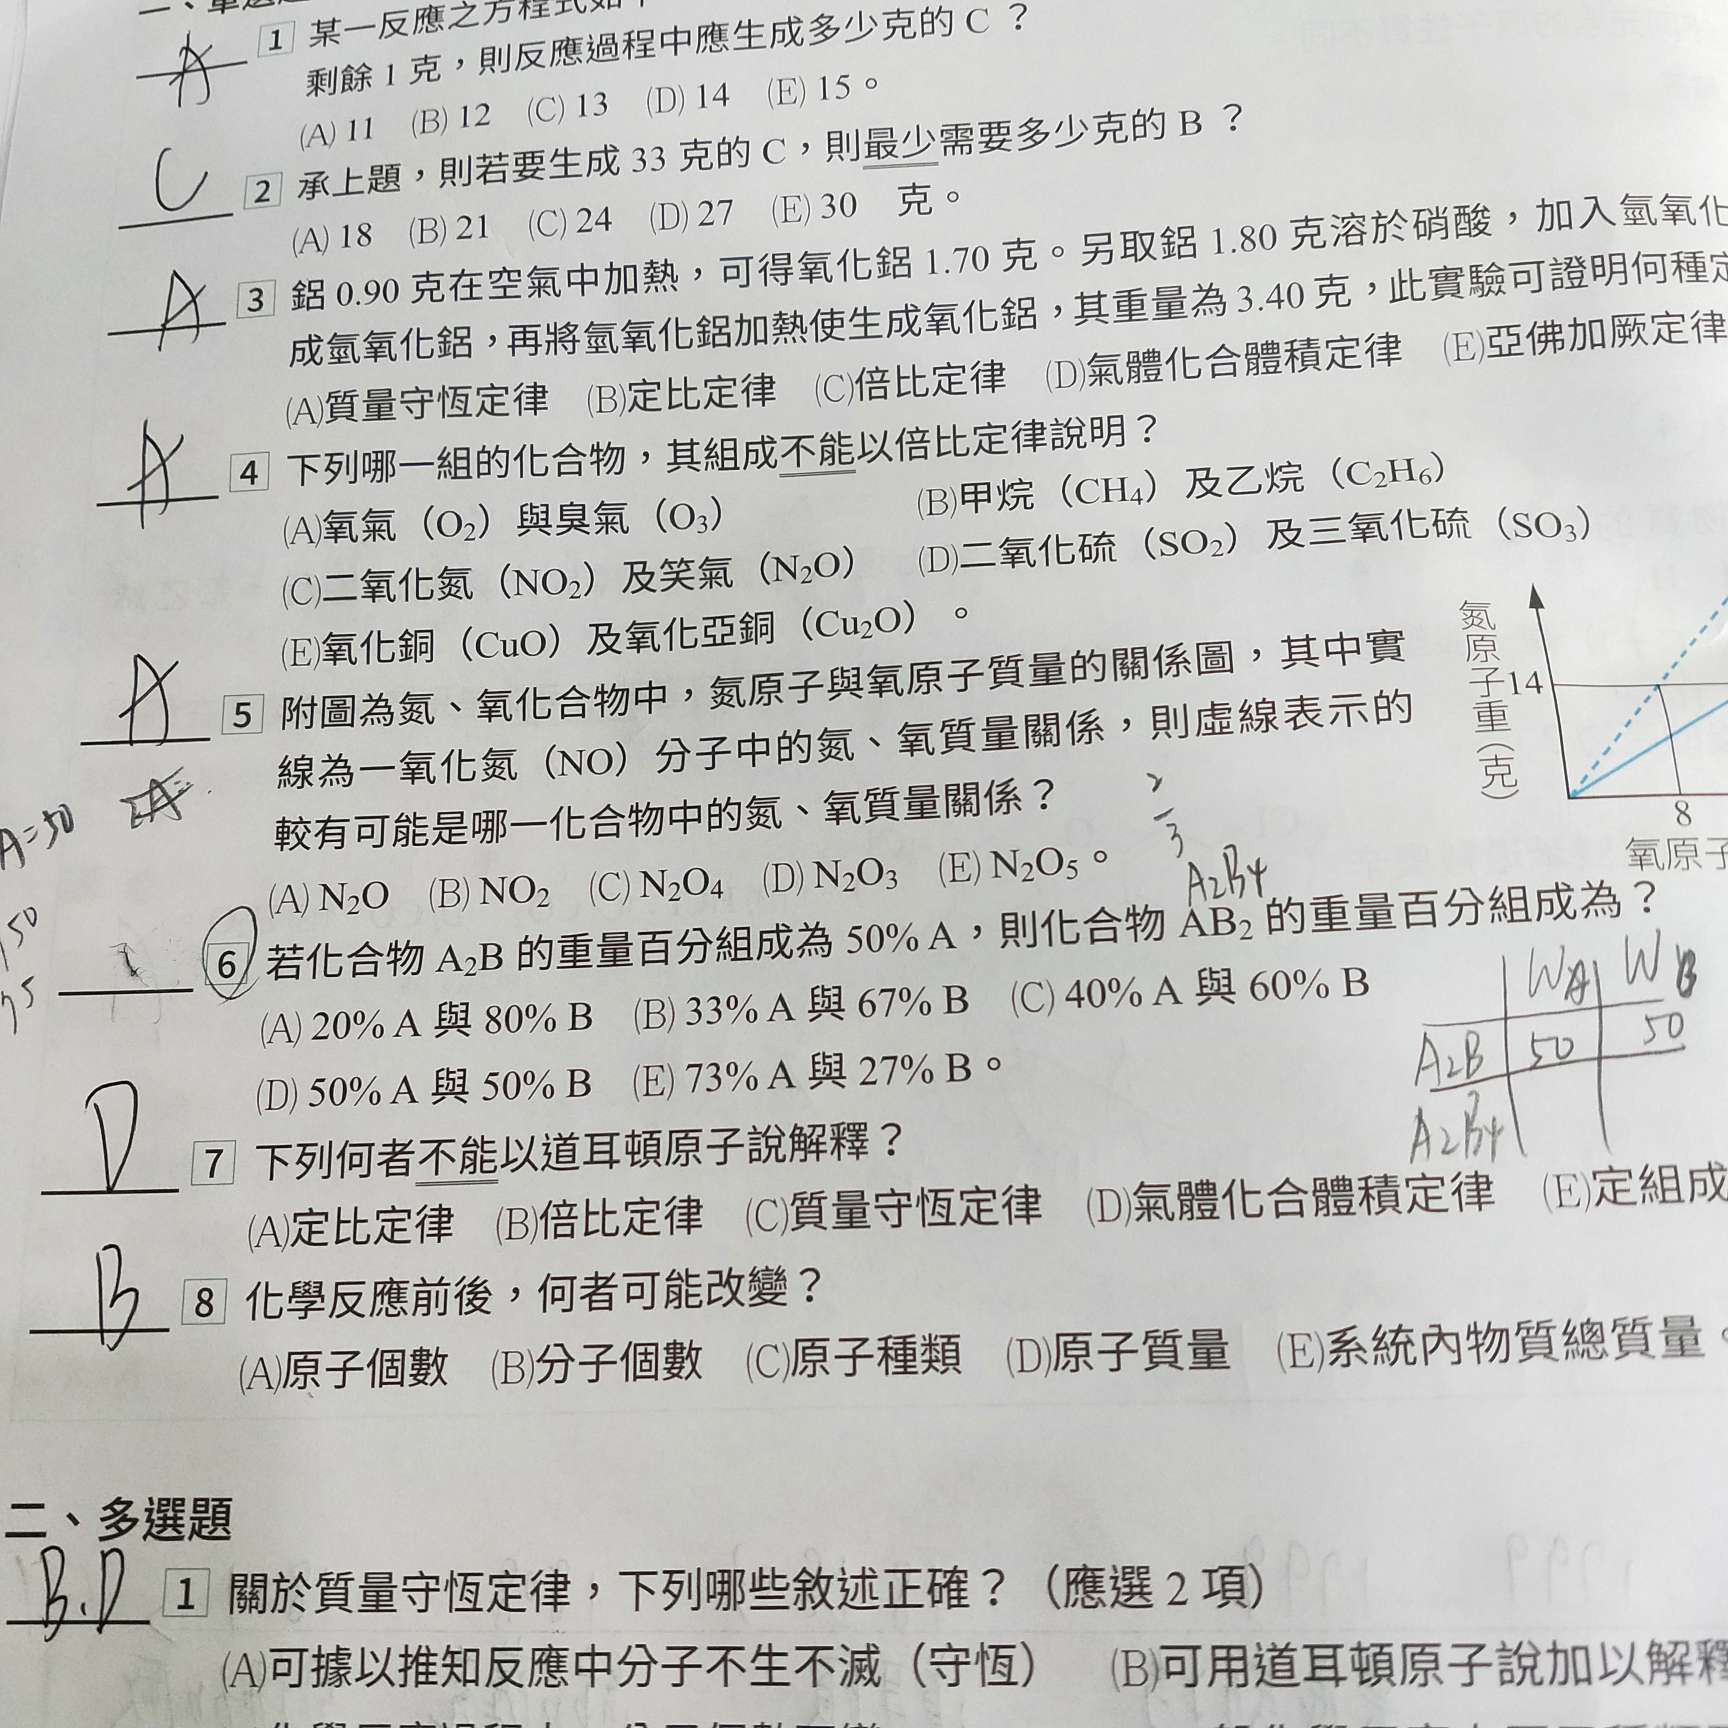 A
1 某一反應之方程式如
剩餘 1 克，則反應過程中應生成多少克的 C ？
(A) 11 (B) 12 (C) 13 (D) 14 (E) 15。
C
2 承上題，則若要生成 33 克的 C，則最少需要多少克的 B ？
(A) 18 (B) 21 (C) 24 (D) 27 (E) 30 克。
A
3 鋁 0.90 克在空氣中加熱，可得氧化鋁 1.70 克。另取鋁 1.80 克溶於硝酸，加入氫氧化
成氫氧化鋁，再將氫氧化鋁加熱使生成氧化鋁，其重量為 3.40 克，此實驗可證明何種定
(A)質量守恆定律 (B)定比定律 (C)倍比定律 (D)氣體化合體積定律 (E)亞佛加厥定律
A
4 下列哪一組的化合物，其組成不能以倍比定律說明？
(A)氧氣（O₂）與臭氧（O₃） (B)甲烷（CH₄）及乙烷（C₂H₆）
(C)二氧化氮（NO₂）及笑氣（N₂O） (D)二氧化硫（SO₂）及三氧化硫（SO₃）
(E)氧化銅（CuO）及氧化亞銅（Cu₂O）。
A
5 附圖為氮、氧化合物中，氮原子與氧原子質量的關係圖，其中實
線為一氧化氮（NO）分子中的氮、氧質量關係，則虛線表示的
較有可能是哪一化合物中的氮、氧質量關係？
(A) N₂O (B) NO₂ (C) N₂O₄ (D) N₂O₃ (E) N₂O₅。
氮原子重（克）
14
8
氧原子
A=50
2/3
A₂B₄
6 若化合物 A₂B 的重量百分組成為 50% A，則化合物 AB₂ 的重量百分組成為？
(A) 20% A 與 80% B (B) 33% A 與 67% B (C) 40% A 與 60% B
(D) 50% A 與 50% B (E) 73% A 與 27% B。
WA WB
A₂B 50 50
A₂B₄
D
7 下列何者不能以道耳頓原子說解釋？
(A)定比定律 (B)倍比定律 (C)質量守恆定律 (D)氣體化合體積定律 (E)定組成
B
8 化學反應前後，何者可能改變？
(A)原子個數 (B)分子個數 (C)原子種類 (D)原子質量 (E)系統內物質總質量。
二、多選題
B.D
1 關於質量守恆定律，下列哪些敘述正確？（應選 2 項）
(A)可據以推知反應中分子不生不滅（守恆） (B)可用道耳頓原子說加以解釋